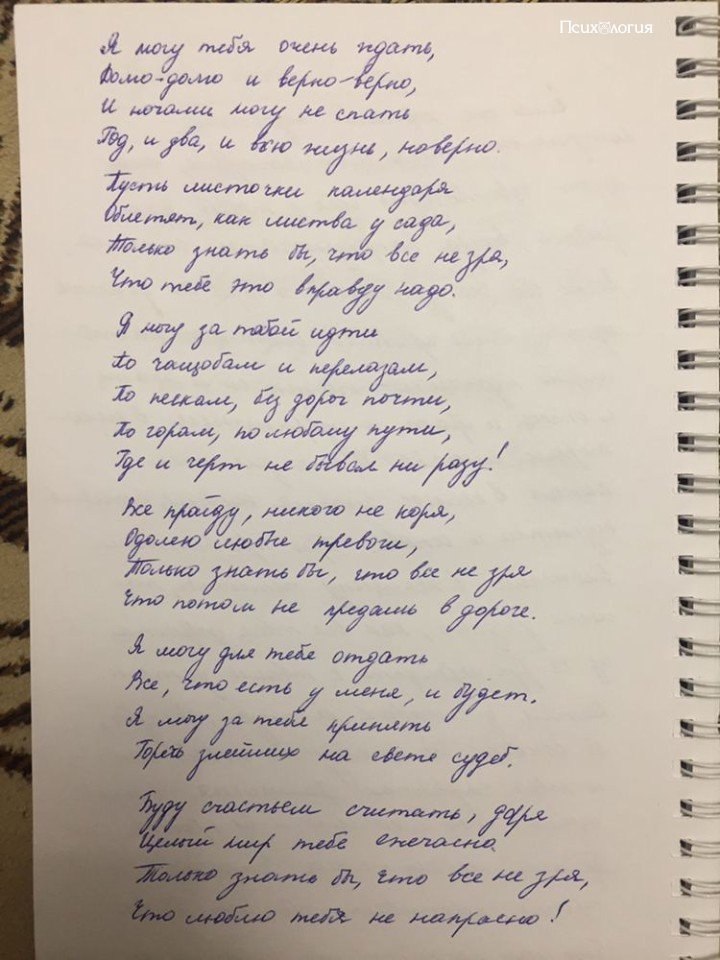 Психология
Я могу тебя очень ждать,
Долго-долго и верно-верно,
И ночами могу не спать
Год, и два, и всю жизнь, наверно.
Пусть листочки календаря
Облетят, как листва у сада,
Только знать бы, что все не зря,
Что тебе это вправду надо.
Я могу за тобой идти
По чащобам и перелазам,
По пескам, без дорог почти,
По горам, по любому пути,
Где и черт не бывал ни разу!
Все пройду, никого не коря,
Одолею любые тревоги,
Только знать бы, что все не зря
Что потом не предашь в дороге.
Я могу для тебя отдать
Все, что есть у меня, и будет.
Я могу за тебя принять
Горечь злейших на свете судеб.
Буду счастьем считать, даря
Целый мир тебе ежечасно.
Только знать бы, что все не зря,
Что люблю тебя не напрасно!